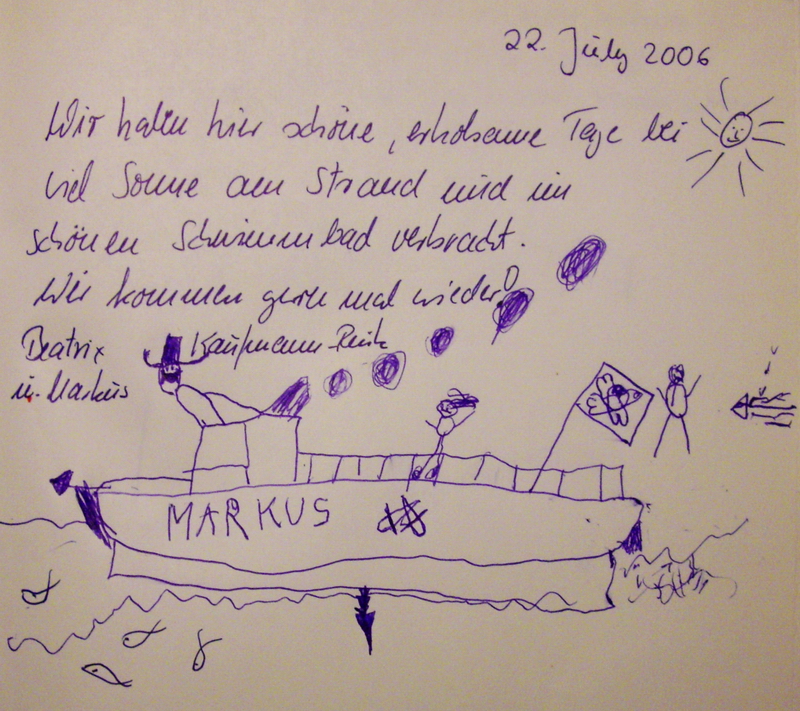 22. July 2006
Wir haben hier schöne, erholsame Tage bei
viel Sonne am Strand und im
schönen Schwimmbad verbracht.
Wir kommen gern mal wieder!
Beatrix Kaufmann-
u. Markus
MARKUS